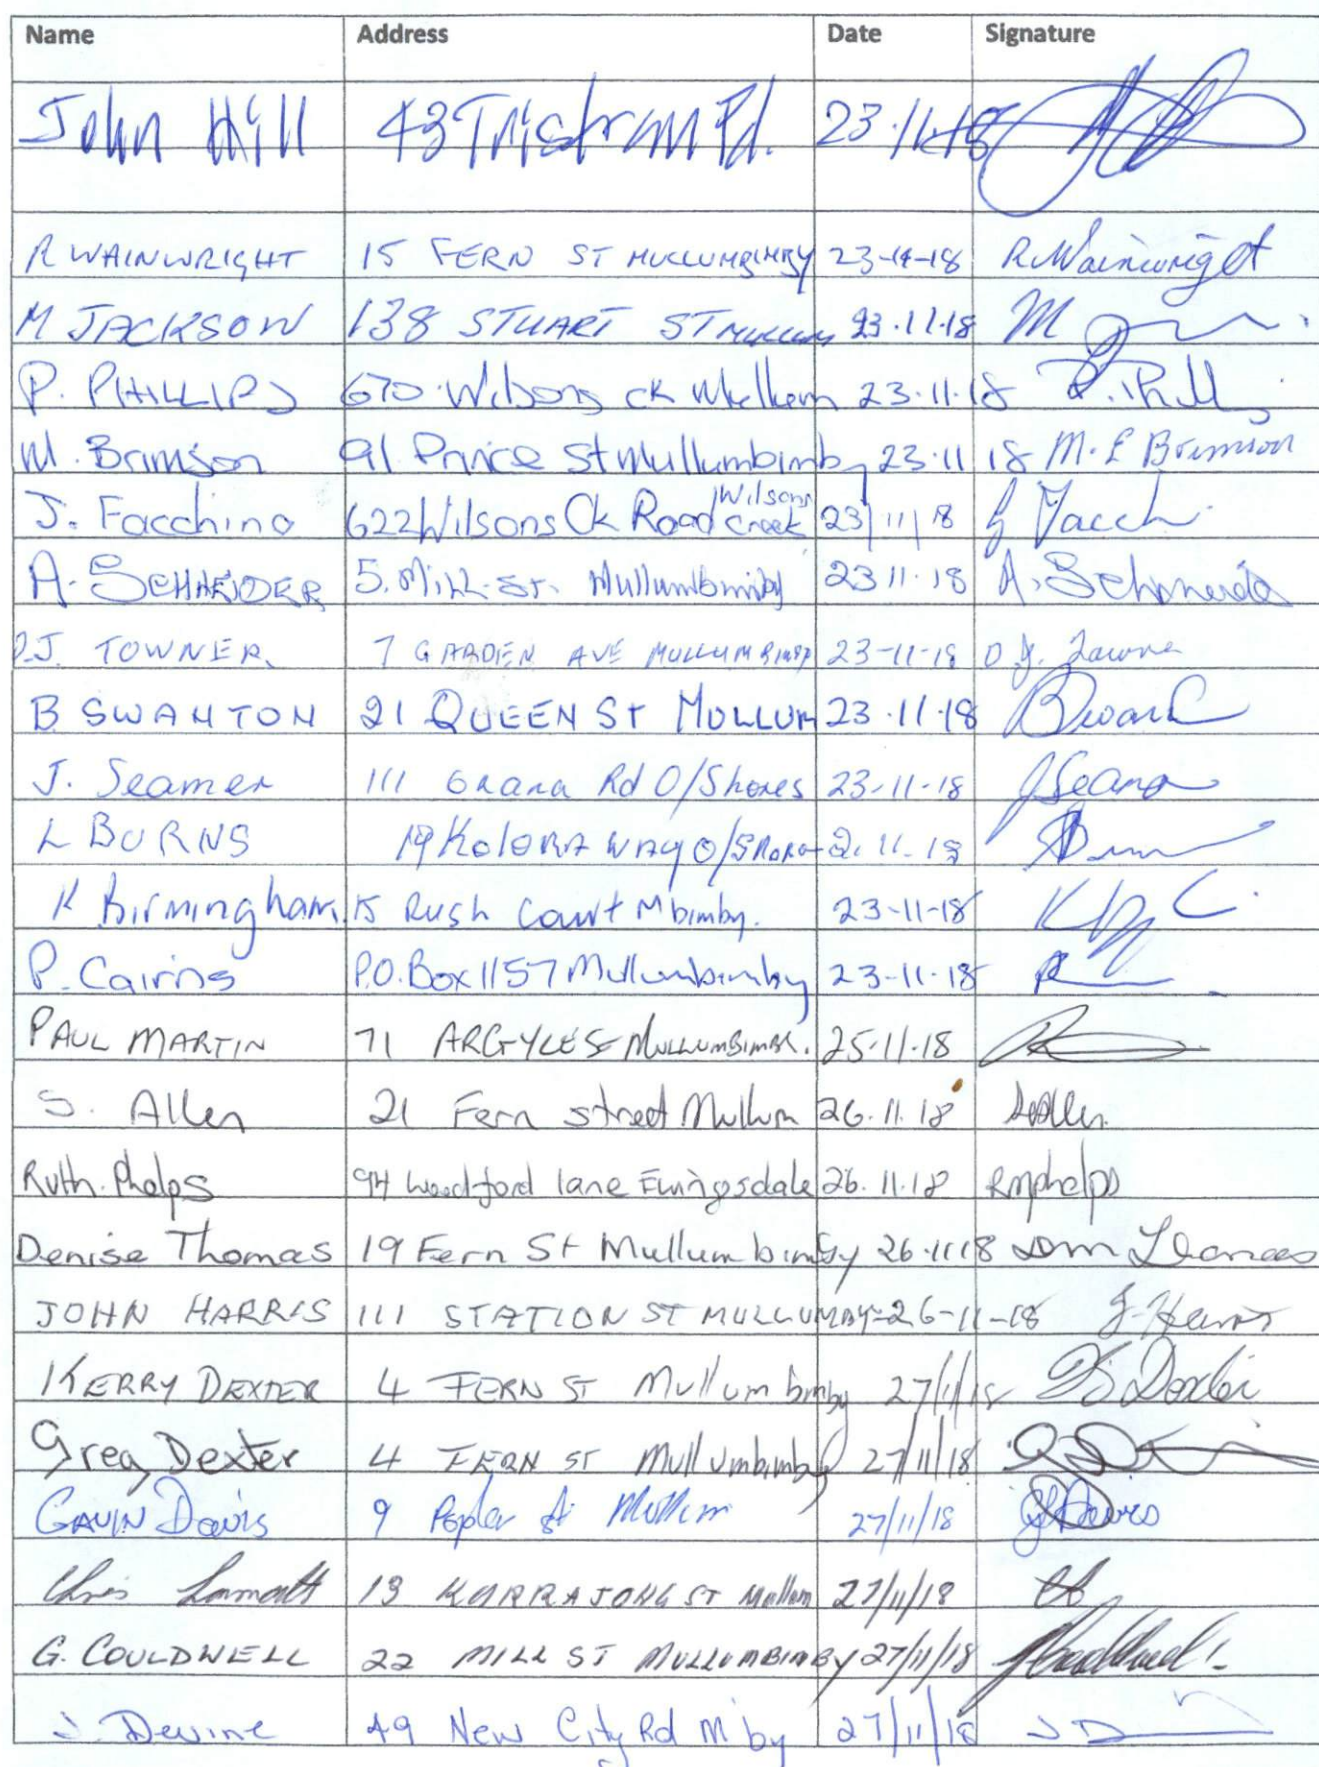 Name Address Date Signature
John Hill 43 Tristram Pd. 23.11.18
R WAINWRIGHT 15 FERN ST MULLUMBIMBY 23-11-18 R Wainwright
M JACKSON 138 STUART ST MULLUM 23.11.18 M
P. PHILLIPS 670 Wilsons ck Mullum 23.11.18 P. Phill
M. Brimson 91 Prince St Mullumbimby 23.11 18 M. E Brimson
J. Facchino 622 Wilsons Ck Road Wilsons Creek 23/11/18 J Facch
A. SCHNEIDER 5. Mill. St. Mullumbimby 23 11.18 A. Schneide
D.J. TOWNER. 7 GARDEN AVE MULLUMBIMBY 23-11-18 D J. Towner
B SWANTON 21 QUEEN ST MULLUM 23.11.18
J. Seamer 111 Orana Rd O/Shores 23-11-18 J Seamer
L BURNS Kolora WAY O/SHORES 11.18
K Birmingham 15 Rush Court Mbimby. 23-11-18
P. Cairns P.O. Box 1157 Mullumbimby 23-11.18
PAUL MARTIN 71 ARGYLE ST MULLUMBIMBY. 25.11.18
S. Allen 21 Fern street Mullum 26.11.18 Allen
Ruth. Phelps 94 Woodford lane Ewingsdale 26.11.18 RMphelps
Denise Thomas 19 Fern St Mullumbimby 26.11 18 Dm Thomas
JOHN HARRIS 111 STATION ST MULLUMBY 26-11-18 J. Harris
KERRY DEXTER 4 FERN ST Mullumbimby 27/11/18 K Dexter
Greg Dexter 4 FERN ST Mullumbimby 27/11/18
GAVIN Davis 9 Poplar St Mullum 27/11/18 G Davis
Chris 13 KURRAJONG ST Mullum 27/11/18
G. COULDWELL 22 MILL ST MULLUMBIMBY 27/11/18
J Devine 49 New City Rd M'by 27/11/18 J D